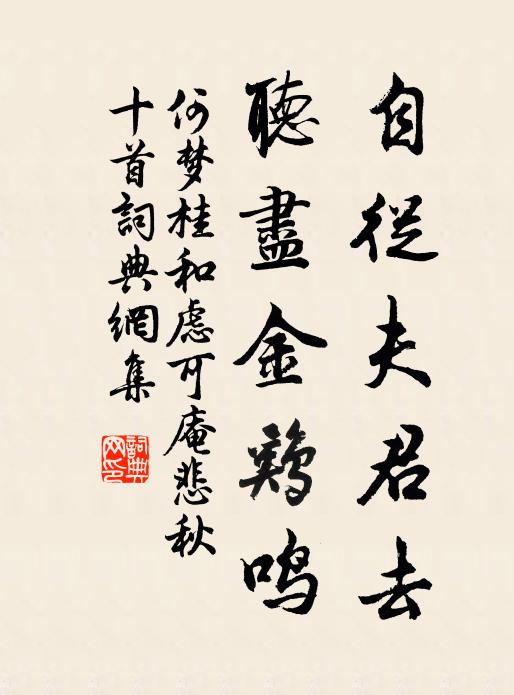 自從夫君去
聽盡金鷄鳴
何梦桂和慮可庵悲秋
十首詞典網集
詞典网印